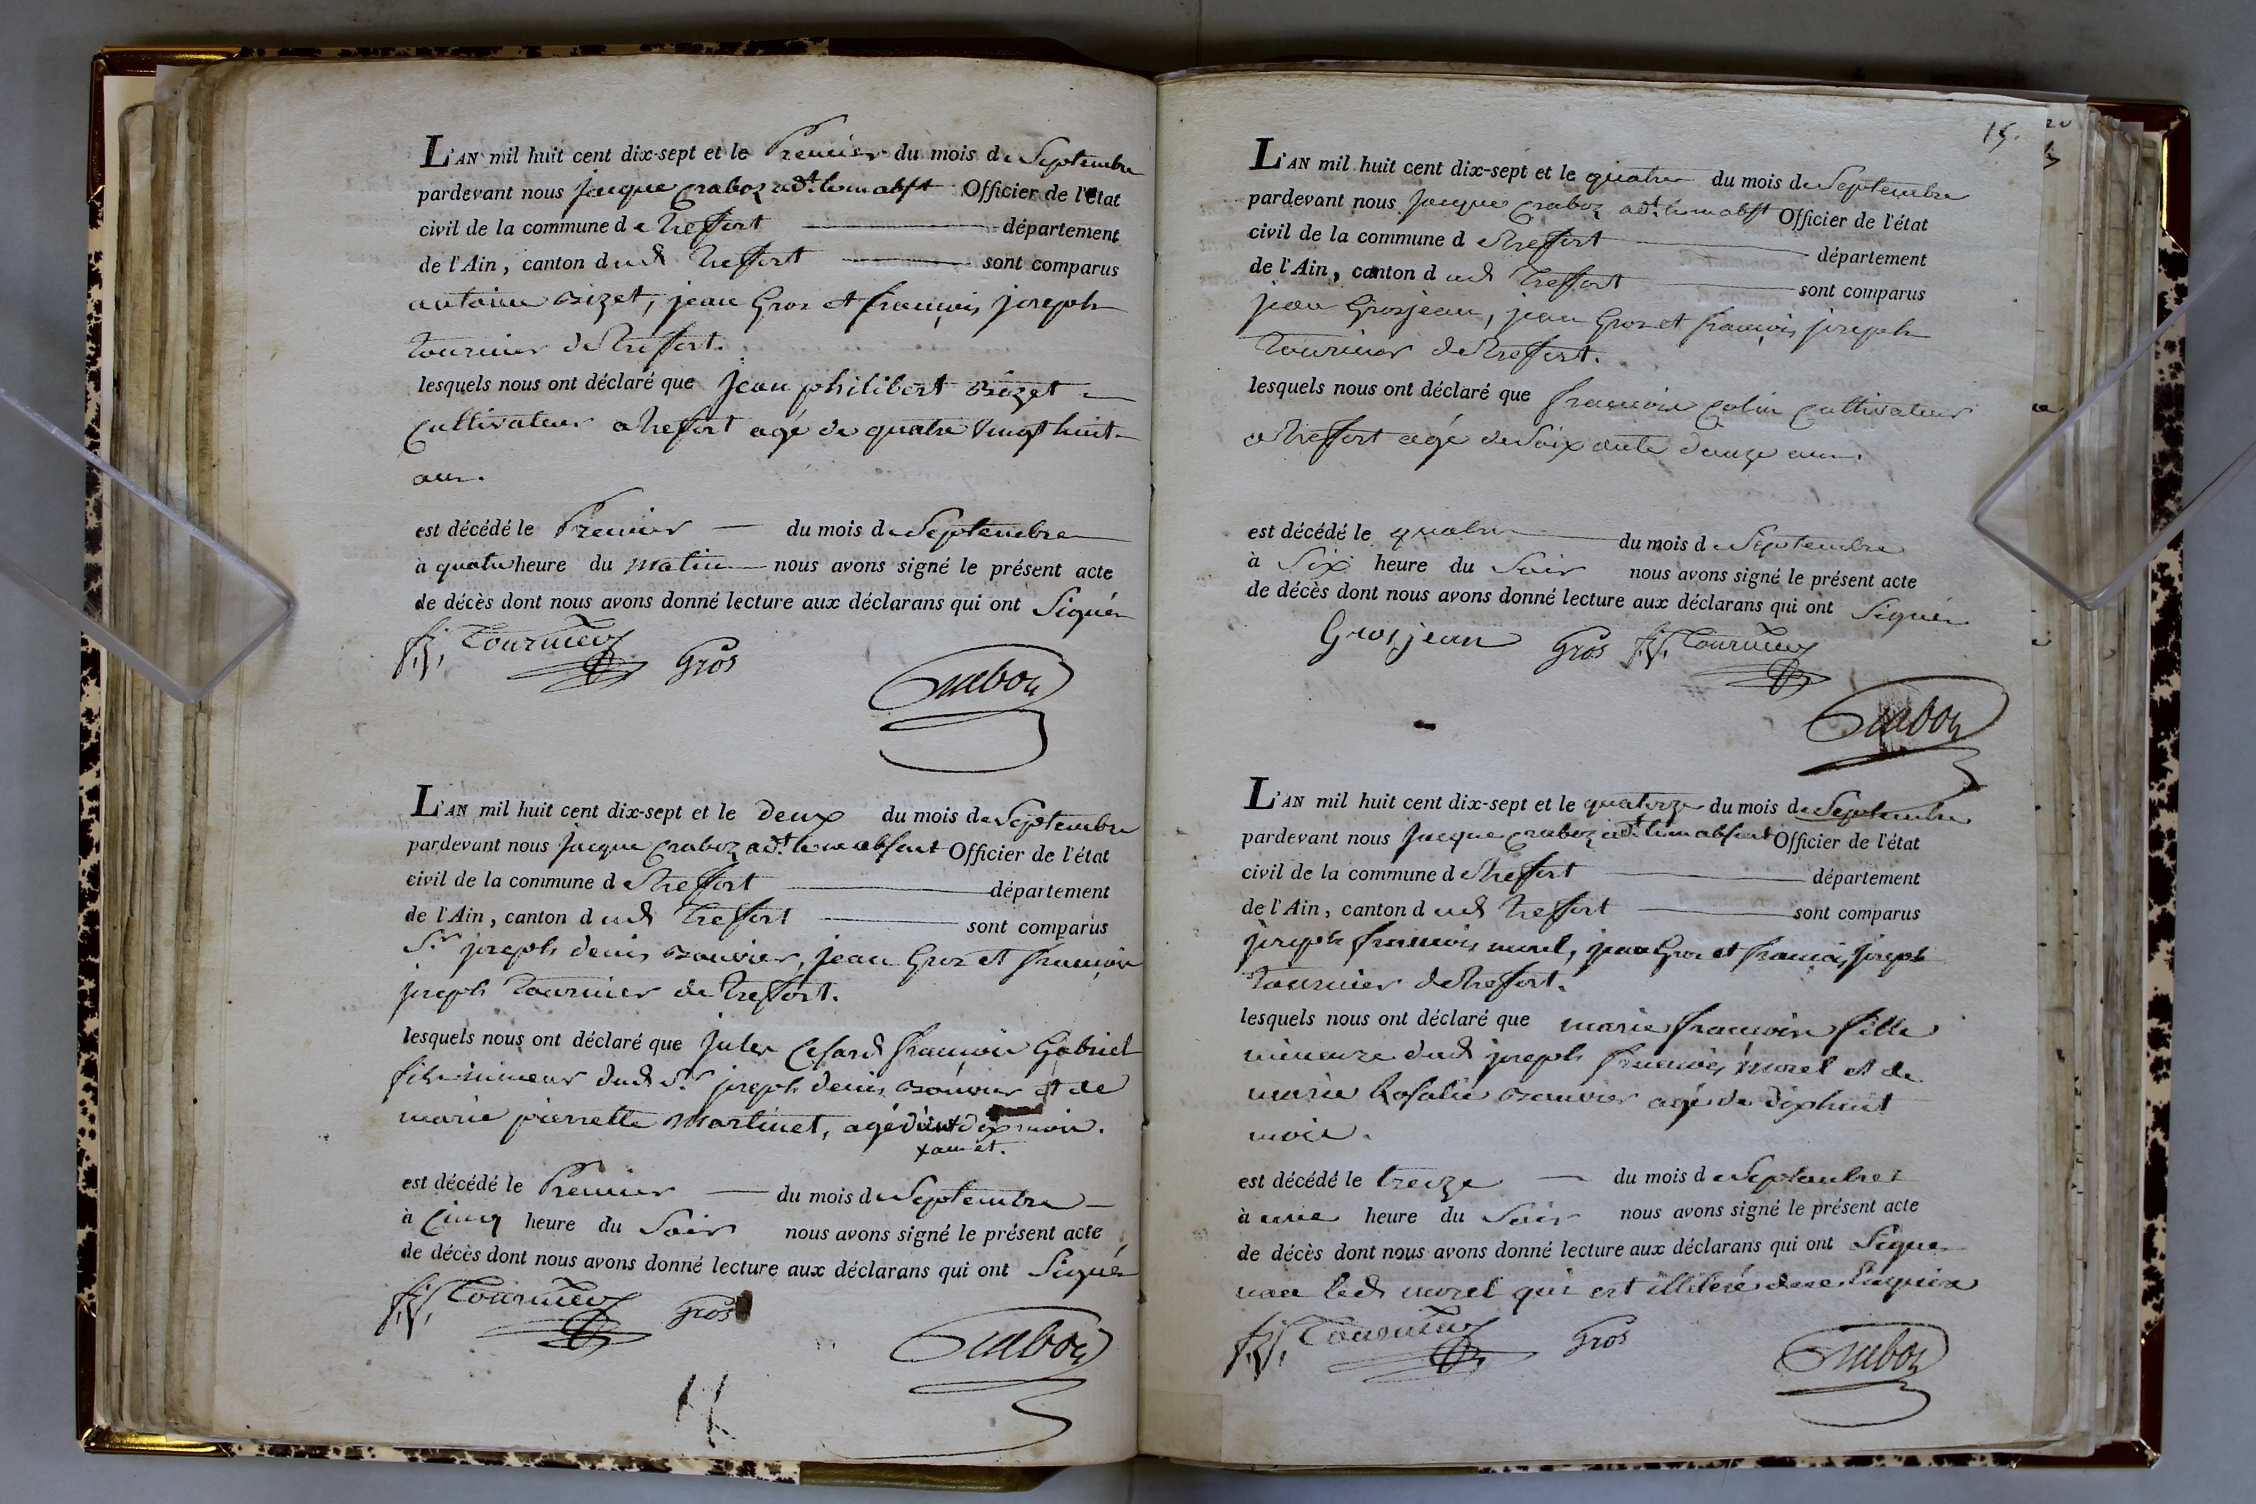 L'AN mil huit cent dix-sept et le Premier du mois de Septembre
pardevant nous jacque Craboz adt. le m abst Officier de l'état
civil de la commune de Treffort département
de l'Ain, canton dudt Treffort sont comparus
antoine Bizet, jean Gros et françois joseph
Tournier de Treffort.
lesquels nous ont déclaré que Jean philibert Bizet
Cultivateur a Treffort agé de quatre vingt huit
ans.
est décédé le Premier du mois de Septembre
à quatre heure du matin nous avons signé le présent acte
de décès dont nous avons donné lecture aux déclarans qui ont Signés
f.j. Tournier Gros
Craboz
L'AN mil huit cent dix-sept et le Deux du mois de Septembre
pardevant nous jacque Craboz adt. le m absent Officier de l'état
civil de la commune de Treffort département
de l'Ain, canton dudt Treffort sont comparus
Sr. joseph denis Bouvier, jean Gros et françois
joseph Tournier de Treffort.
lesquels nous ont déclaré que Jules Cesard françois Gabriel
fils mineur dudt Sr joseph denis Bouvier et de
marie pierrette Martinet, agé d'un x dix mois.
x an et.
est décédé le Premier du mois de Septembre
à Cinq heure du Soir nous avons signé le présent acte
de décès dont nous avons donné lecture aux déclarans qui ont Signés
f.j. Tournier Gros
Craboz
15.
L'AN mil huit cent dix-sept et le quatre du mois de Septembre
pardevant nous Jacque Craboz adt. le m abst Officier de l'état
civil de la commune de Treffort département
de l'Ain, canton dudt Treffort sont comparus
jean Grosjean, jean Gros et françois joseph
Tournier de Treffort.
lesquels nous ont déclaré que françois Colin Cultivateur
a Treffort agé de Soixante douze ans.
est décédé le quatre du mois de Septembre
à Six heure du Soir nous avons signé le présent acte
de décès dont nous avons donné lecture aux déclarans qui ont Signés
Grosjean Gros f.j. Tournier
Craboz
L'AN mil huit cent dix-sept et le quatorze du mois de Septembre
pardevant nous Jacque Craboz adt. le m absent Officier de l'état
civil de la commune de Treffort département
de l'Ain, canton dudt Treffort sont comparus
joseph françois morel, jean Gros et françois joseph
Tournier de Treffort.
lesquels nous ont déclaré que marie françoise fille
mineure dudt joseph françois morel et de
marie Rosalie Bouvier agée de dixhuit
mois.
est décédé le treize du mois de Septembre
à une heure du Soir nous avons signé le présent acte
de décès dont nous avons donné lecture aux déclarans qui ont Signé
non ledt morel qui est illiteré de ce Enquis
f.j. Tournier Gros
Craboz